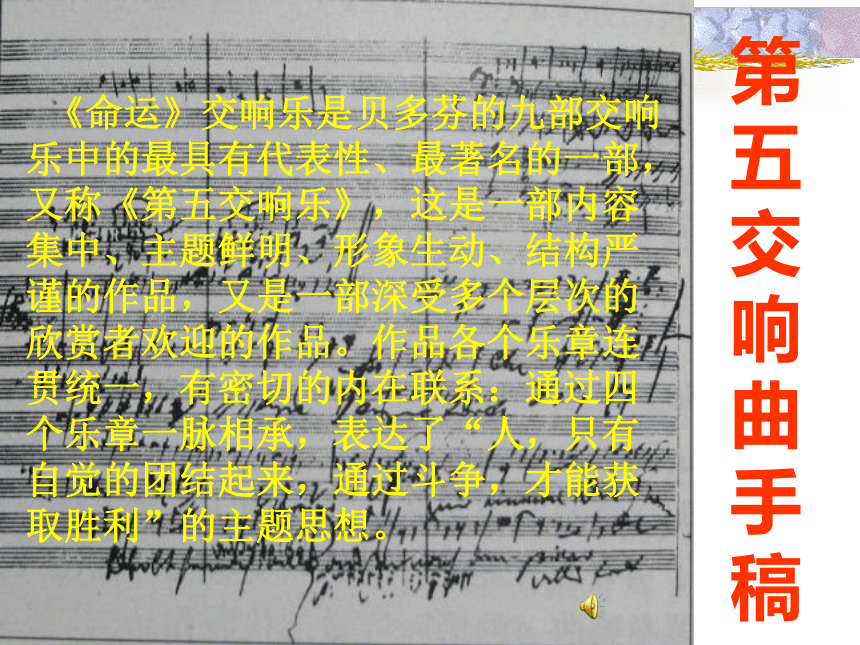 《命运》交响乐是贝多芬的九部交响
乐中的最具有代表性、最著名的一部，
又称《第五交响乐》，这是一部内容
集中、主题鲜明、形象生动、结构严
谨的作品，又是一部深受多个层次的
欣赏者欢迎的作品。作品各个乐章连
贯统一，有密切的内在联系：通过四
个乐章一脉相承，表达了“人，只有
自觉的团结起来，通过斗争，才能获
取胜利”的主题思想。
第五交响曲手稿